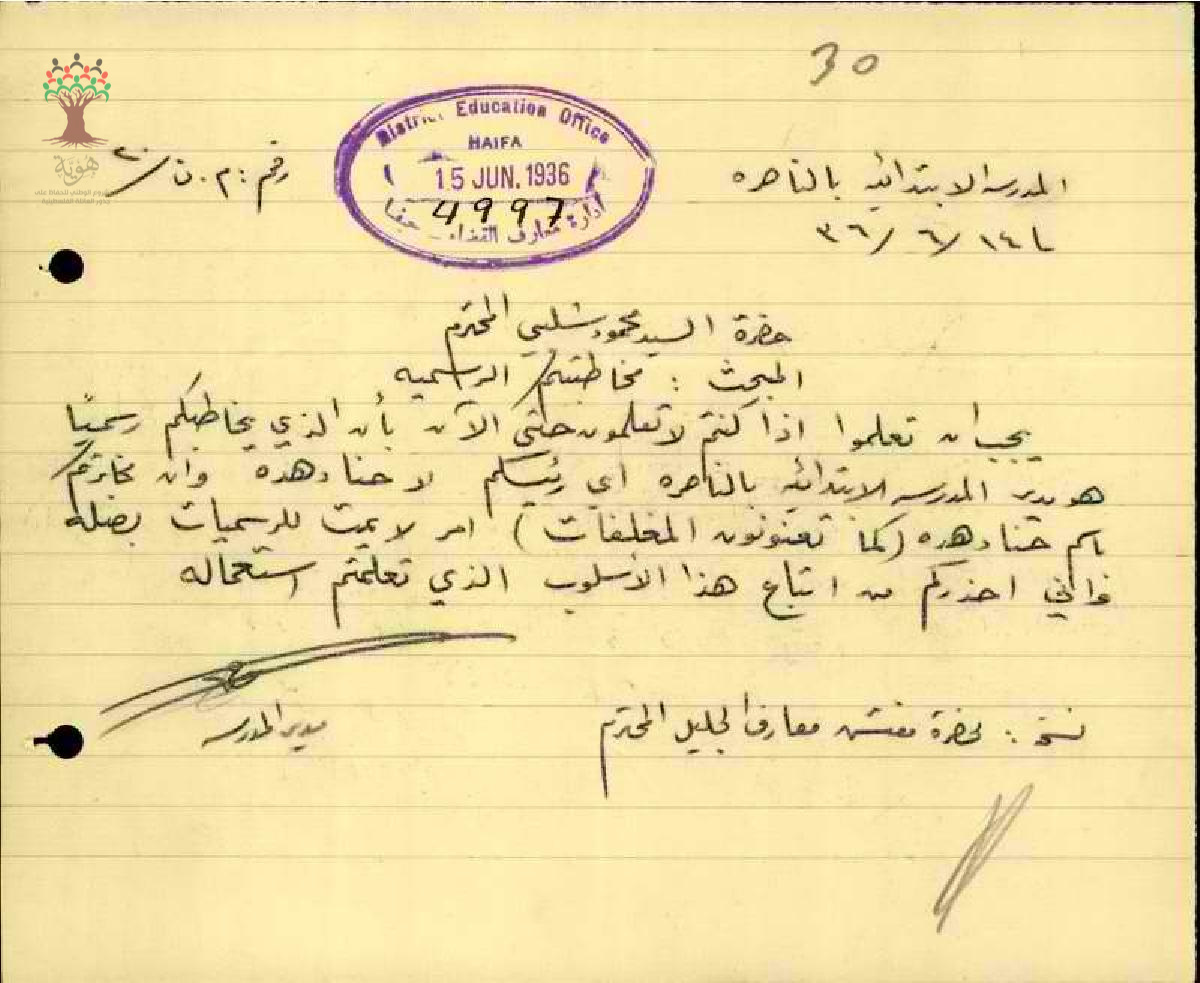 30
District Education Office
HAIFA
15 JUN. 1936
4997
ادارة معارف القضاء حيفا
المدرسه الابتدائيه بالناصره
١٤/٦/٣٦
رقم : م.ن/٢٠
هوية
حضرة السيد محمود شلبي المحترم
المبحث : مخاطبتكم الرسميه
يجب ان تعلموا اذا كنتم لا تعلمون حتى الآن بأن الذي يخاطبكم رسميًا
هو مدير المدرسه الابتدائيه بالناصره اي رئيسكم لا حنا دهده وان مخابرتكم
باسم حنا دهده (كما تعنونون المغلفات) امر لا يمت للرسميات بصله
فاني احذركم من اتباع هذا الأسلوب الذي تعلمتم استعماله
مدير المدرسه
نسخة : لحضرة مفتش معارف الجليل المحترم